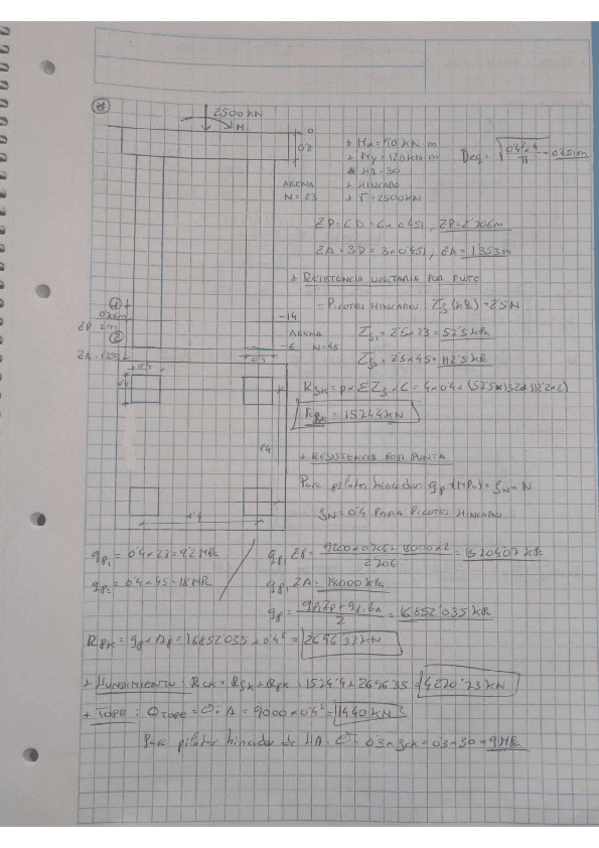 2500 KN
M
0
0'8
+ Mx = 90 KN·m
+ My = 120 KN·m
HA-30
+ HINCADO
+ V = 2500 KN
Deq = √(0'4²×4/π) = 0'451m
ARENA
N = 23
ZP = 6D = 6×0'451, ZP = 2'706m
ZA = 3D = 3×0'451, ZA = 1'353m
+ RESISTENCIA UNITARIA POR FUSTE
- PILOTES HINCADOS:
= 2'5N
①
0'706m
ZP 2m
②
ZA = 1'353
-14
ARENA
-6 N=45
= 2'5×23 = 57'5 KPa
= 2'5×45 = 112'5 KPa
0'4
0'4
1'4
1'4
= 1524'4 KN
+ RESISTENCIA POR PUNTA
Para pilotes hincados qp (MPa) = fN × N
fN = 0'4 PARA PILOTES HINCADOS
qp1 = 0'4×23 = 9'2 MPa
qp2 = 0'4×45 = 18 MPa
qp, ZP = (9200×0'706 + 18000×2)/2'706 = 15704'07 KPa
qp, ZA = 18000 KPa
qp = (qp,ZP + qp,ZA)/2 = 16852'035 KPa
Rpk = qp × Ap = 16852'035 × 0'4² = 2696'33 KN
+ HUNDIMIENTO: Rck = Rsk + Rpk = 1524'4 + 2696'33 = 4220'73 KN
+ TOPE: QTOPE = σ·A = 9000×0'4² = 1440 KN
Para pilotes hincados de HA: σ = 0'3×fck = 0'3×30 = 9 MPa